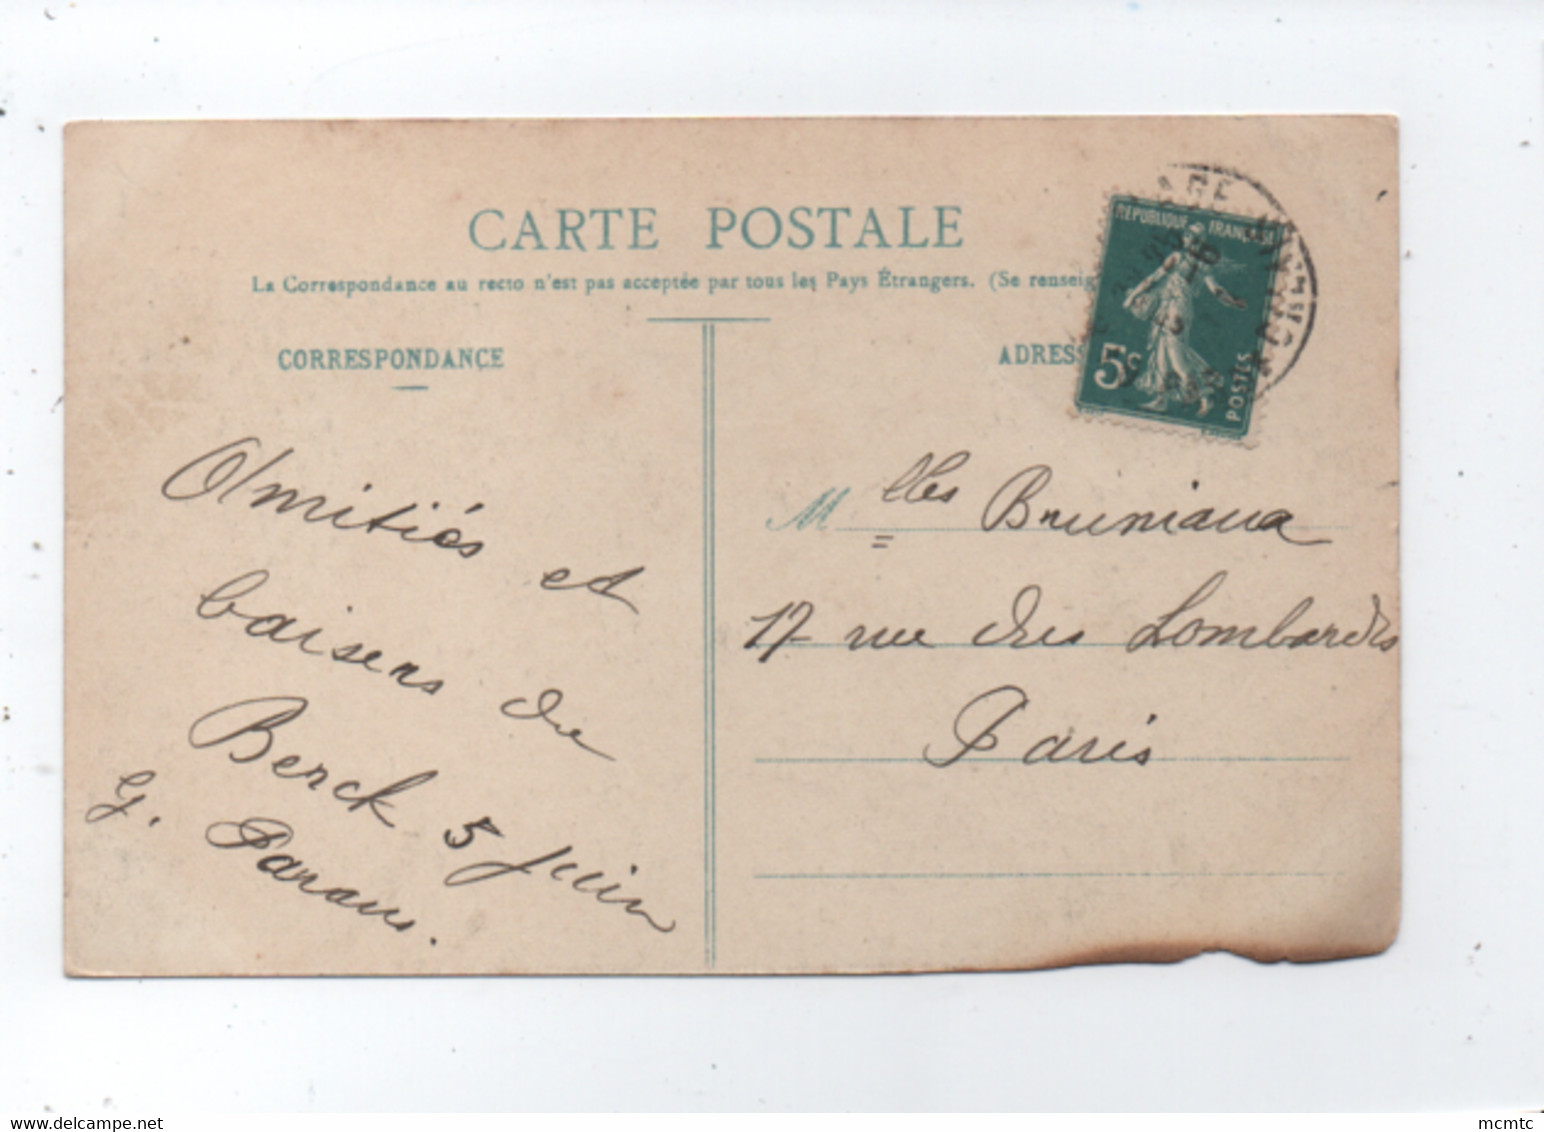 CARTE POSTALE
La Correspondance au recto n'est pas acceptée par tous les Pays Étrangers. (Se renseig
CORRESPONDANCE
ADRES
REPUBLIQUE FRANÇAISE
5c
POSTES
Amitiés et
baisers de
Berck 5 juin
G. Paraus.
Mlles Bruniaux
17 rue des Lombards
Paris
mcmtc